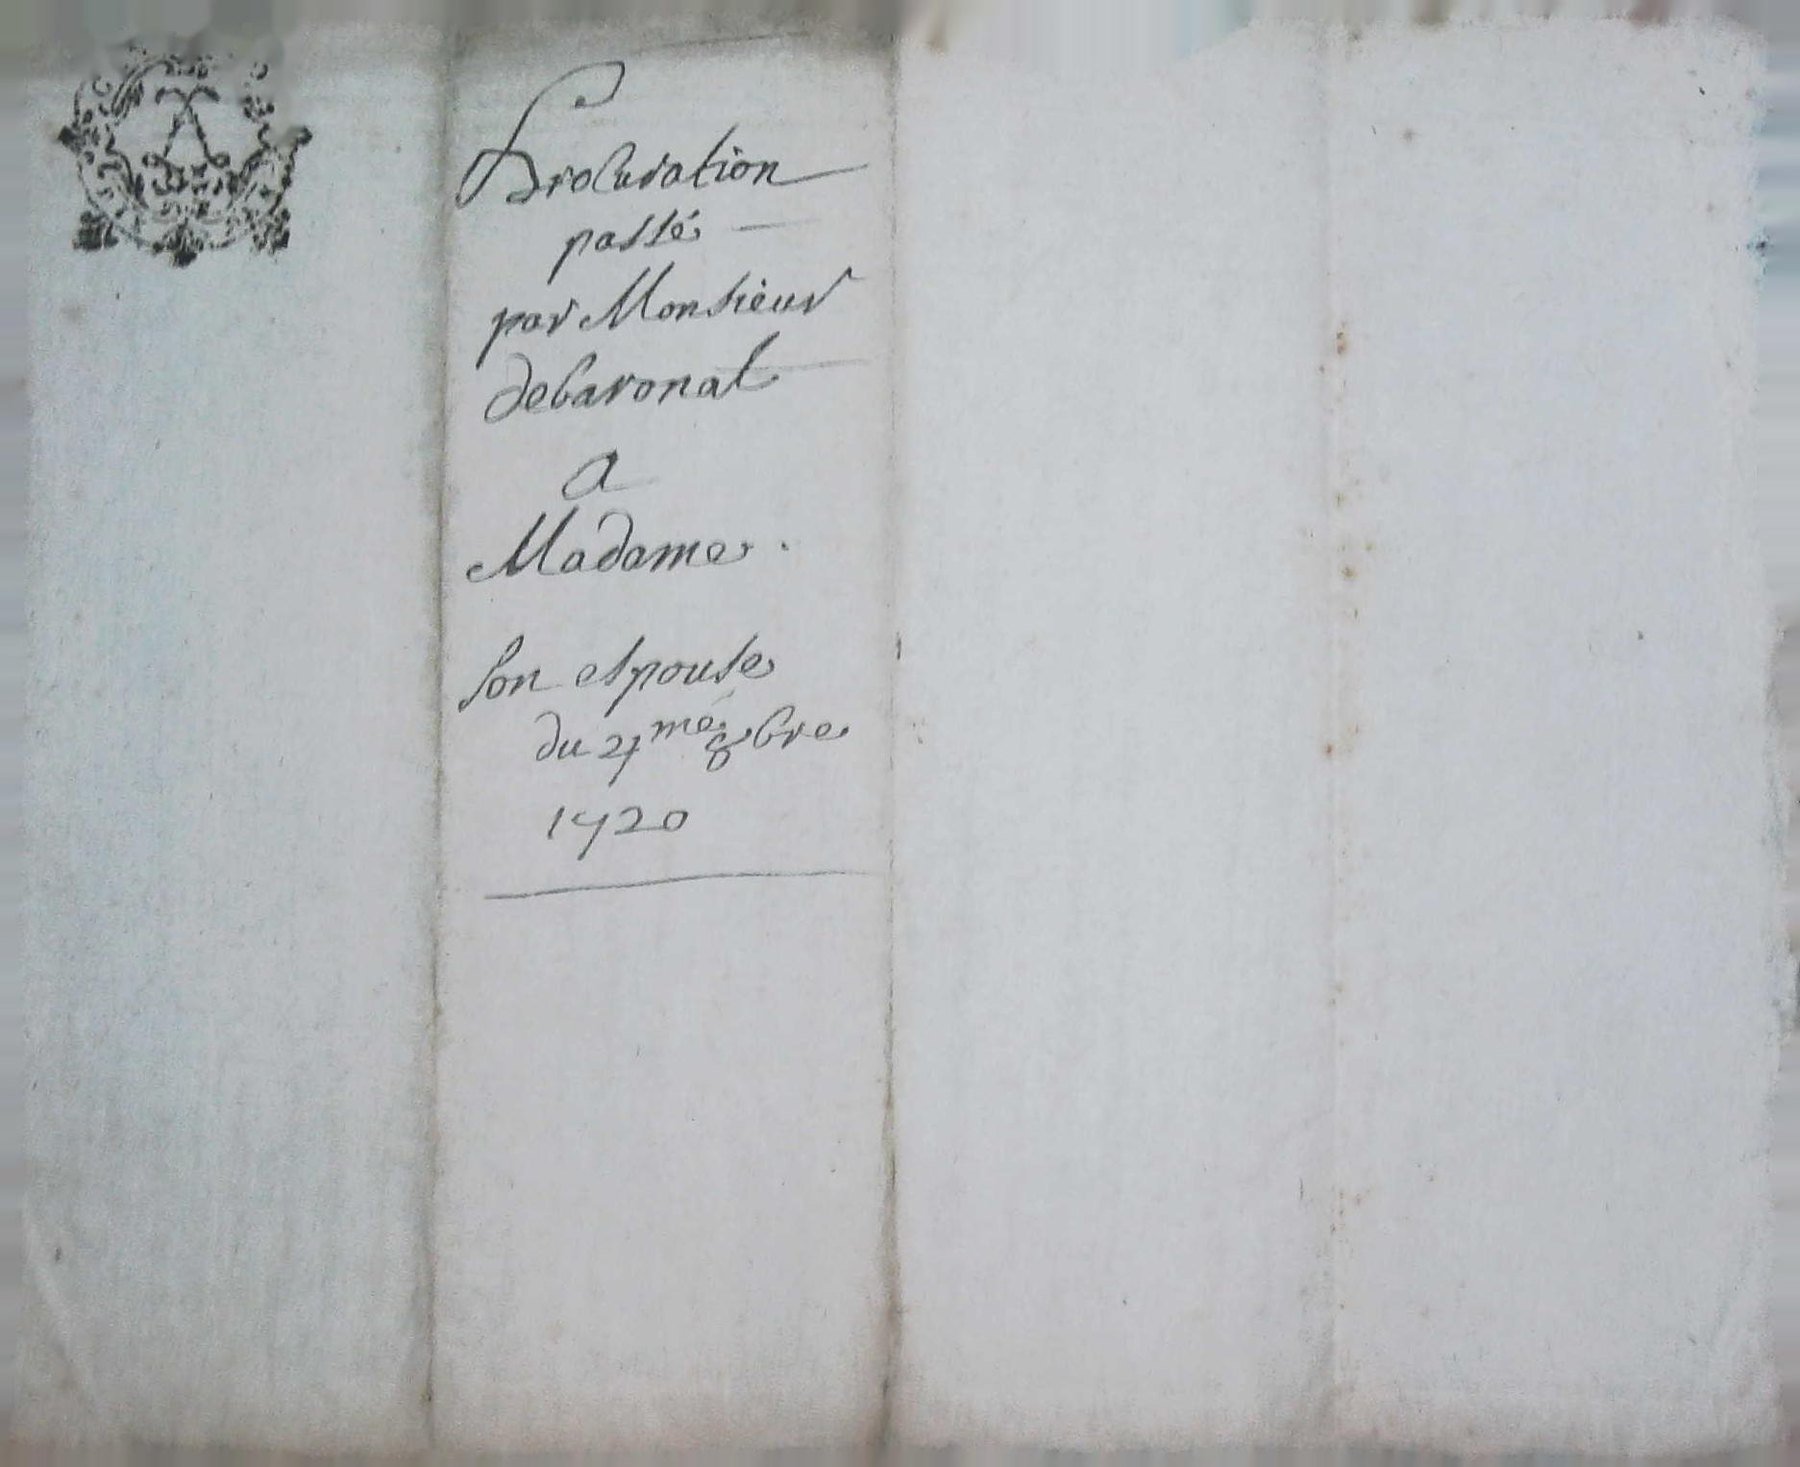 Procuration
passé
par Monsieur
debaronat
a
Madame
son espouse
du 21me 8bre
1720